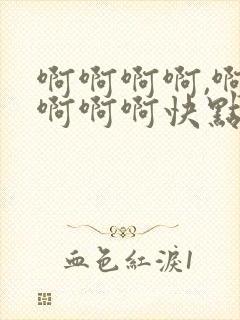 啊啊啊啊,啊
啊啊啊快點
血色紅淚1